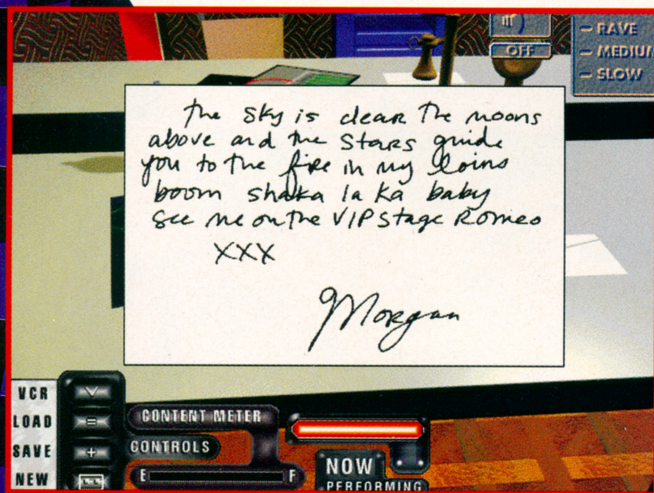 OFF
— RAVE
— MEDIUM
— SLOW
the sky is clear the moons
above and the stars guide
you to the fire in my loins
boom shaka la ka baby
see me on the VIP stage Romeo
XXX
Morgan
VCR
LOAD
SAVE
NEW
CONTENT METER
CONTROLS
E F
NOW
PERFORMING